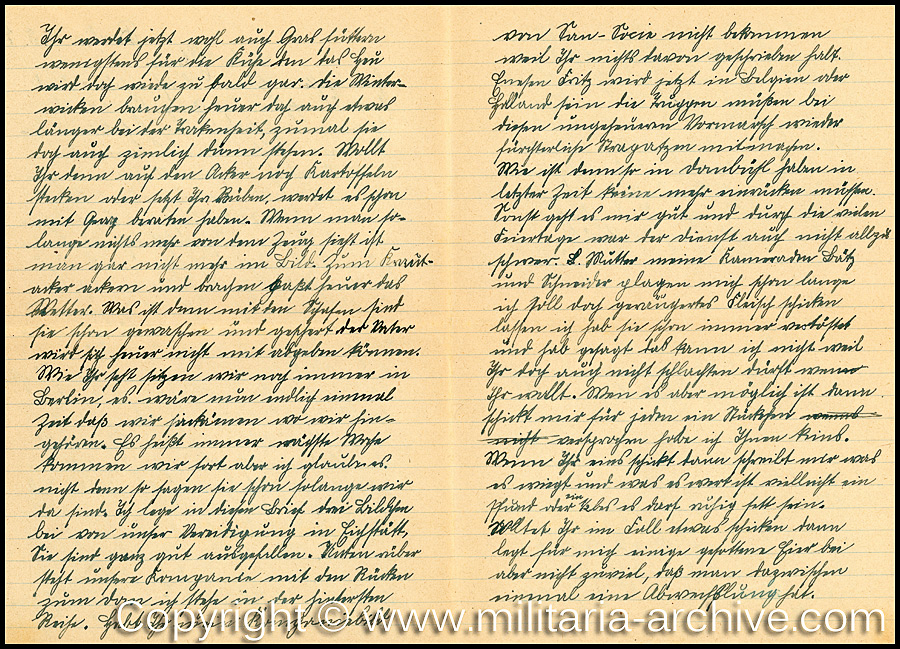 Ihr werdet jetzt wohl auch Gras füttern
wenigstens für die Kühe den das Heu
wird doch wieder zu bald gar. die Winter-
wicken brauchen heuer doch auch etwas
länger bei der Trokenheit, zumal sie
doch auch zimlich dünn stehen. Wollt
Ihr denn auf den Acker noch Kartoffeln
stecken oder setzt Ihr Rüben, werdet es schon
mit Georg beraten haben. Wenn man so-
lange nichts mehr von dem Zeug sieht ist
man gar nicht mehr im Bild. Zum Kraut-
acker ackern und brachen paßt heuer das
Wetter. Was ist denn mit den Schafen sind
sie schon gewaschen und geschert der Vater
wird sich heuer nicht mit abgeben können.
Wie Ihr seht sitzen wir noch immer in
Berlin, es wäre nun endlich einmal
Zeit daß wir hinkämen wo wir hin-
gehören. Es heißt immer nächste Woche
kommen wir fort aber ich glaube es
nicht denn so sagen sie schon solange wir
da sind. Ich lege in diesen Brief drei Bildchen
bei von unser Vereidigung in Eichstätt,
Sie sind ganz gut ausgefallen. Vorn
steht unsere Kompanie mit den Rücken
zum dom ich stehe in der hintersten
Reihe. Habt Ihr
von San-Socie nicht bekommen
weil Ihr nichts davon geschrieben habt.
Fritz wird jetzt in Belgien oder
Holland sein die Truppen müßen bei
diesen ungeheuern Vormarsch wieder
fürchterliche Strapatzen mitmachen.
Wie ist denn so in Dombühl haben in
letzter Zeit keine mehr einrücken müssen.
Sonst geht es mir gut und durch die vielen
Feiertage war der Dienst auch nicht allzu
schwer. L. Mutter meine Kameraden Bätz
und Schneider plagen mich schon lange
ich soll doch geräuchertes Fleisch schicken
lassen ich hab sie schon immer vertöstet
und hab gesagt das kann ich nicht weil
Ihr doch auch nicht schlachten dürft wenn
Ihr wollt. Wen es aber möglich ist dann
schickt mir für jeden ein Stückchen wenns
nicht versprochen habe ich Ihnen keins.
Wenn Ihr eins schickt dann schreibt mir was
es wiegt und was es wert ist vielleicht ein
Pfund oder ein halbes es darf ruhig fett sein.
Wolltet Ihr im Fall etwas schicken dann
legt für mich einige gesottene Eier bei
aber nicht zuviel, daß man dazwischen
einmal eine Abwechslung hat.
Copyright © www.militaria-archive.com